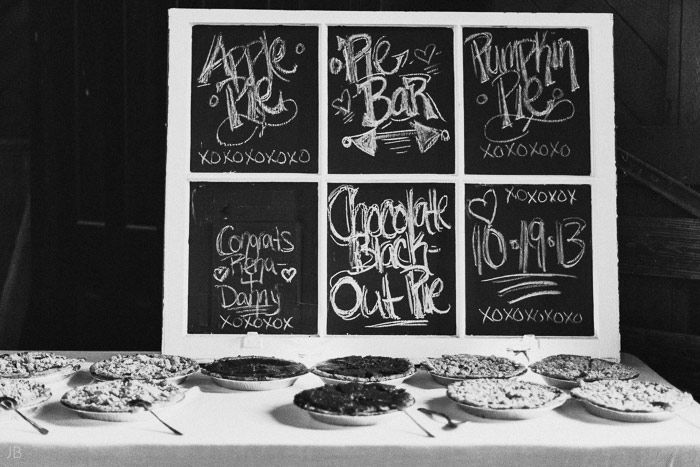 Apple
Pie
XOXOXOXOXO
Pie
Bar
Pumpkin
Pie
XOXOXOXO
Congrats
Rena
+
Danny
XOXOXOX
Chocolate
Black-
Out Pie
XOXOXOX
10·19·13
XOXOXOXOXO
JB